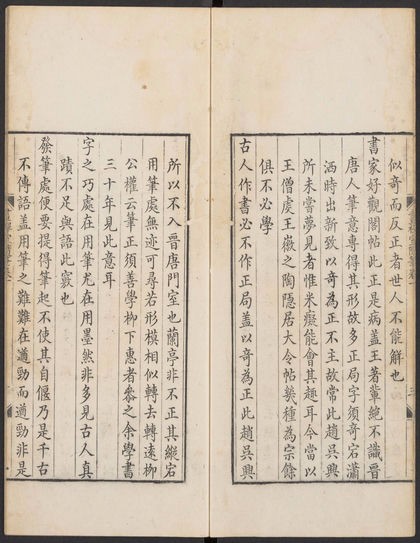 似奇而反正者世人不能解也
書家好觀閣帖此正是病蓋王著輩絕不識晉
唐人筆意專得其形故多正局字須奇宕瀟
洒時出新致以奇為正不主故常此趙吳興
所未嘗夢見者惟米癡能會其趣耳今當以
王僧虔王徽之陶隱居大令帖幾種為宗餘
俱不必學
古人作書必不作正局蓋以奇為正此趙吳興
所以不入晉唐門室也蘭亭非不正其縱宕
用筆處無迹可尋若形模相似轉去轉遠柳
公權云筆正須善學柳下惠者參之余學書
三十年見此意耳
字之巧處在用筆尤在用墨然非多見古人真
蹟不足與語此竅也
發筆處便要提得筆起不使其自偃乃是千古
不傳語蓋用筆之難難在遒勁而遒勁非是